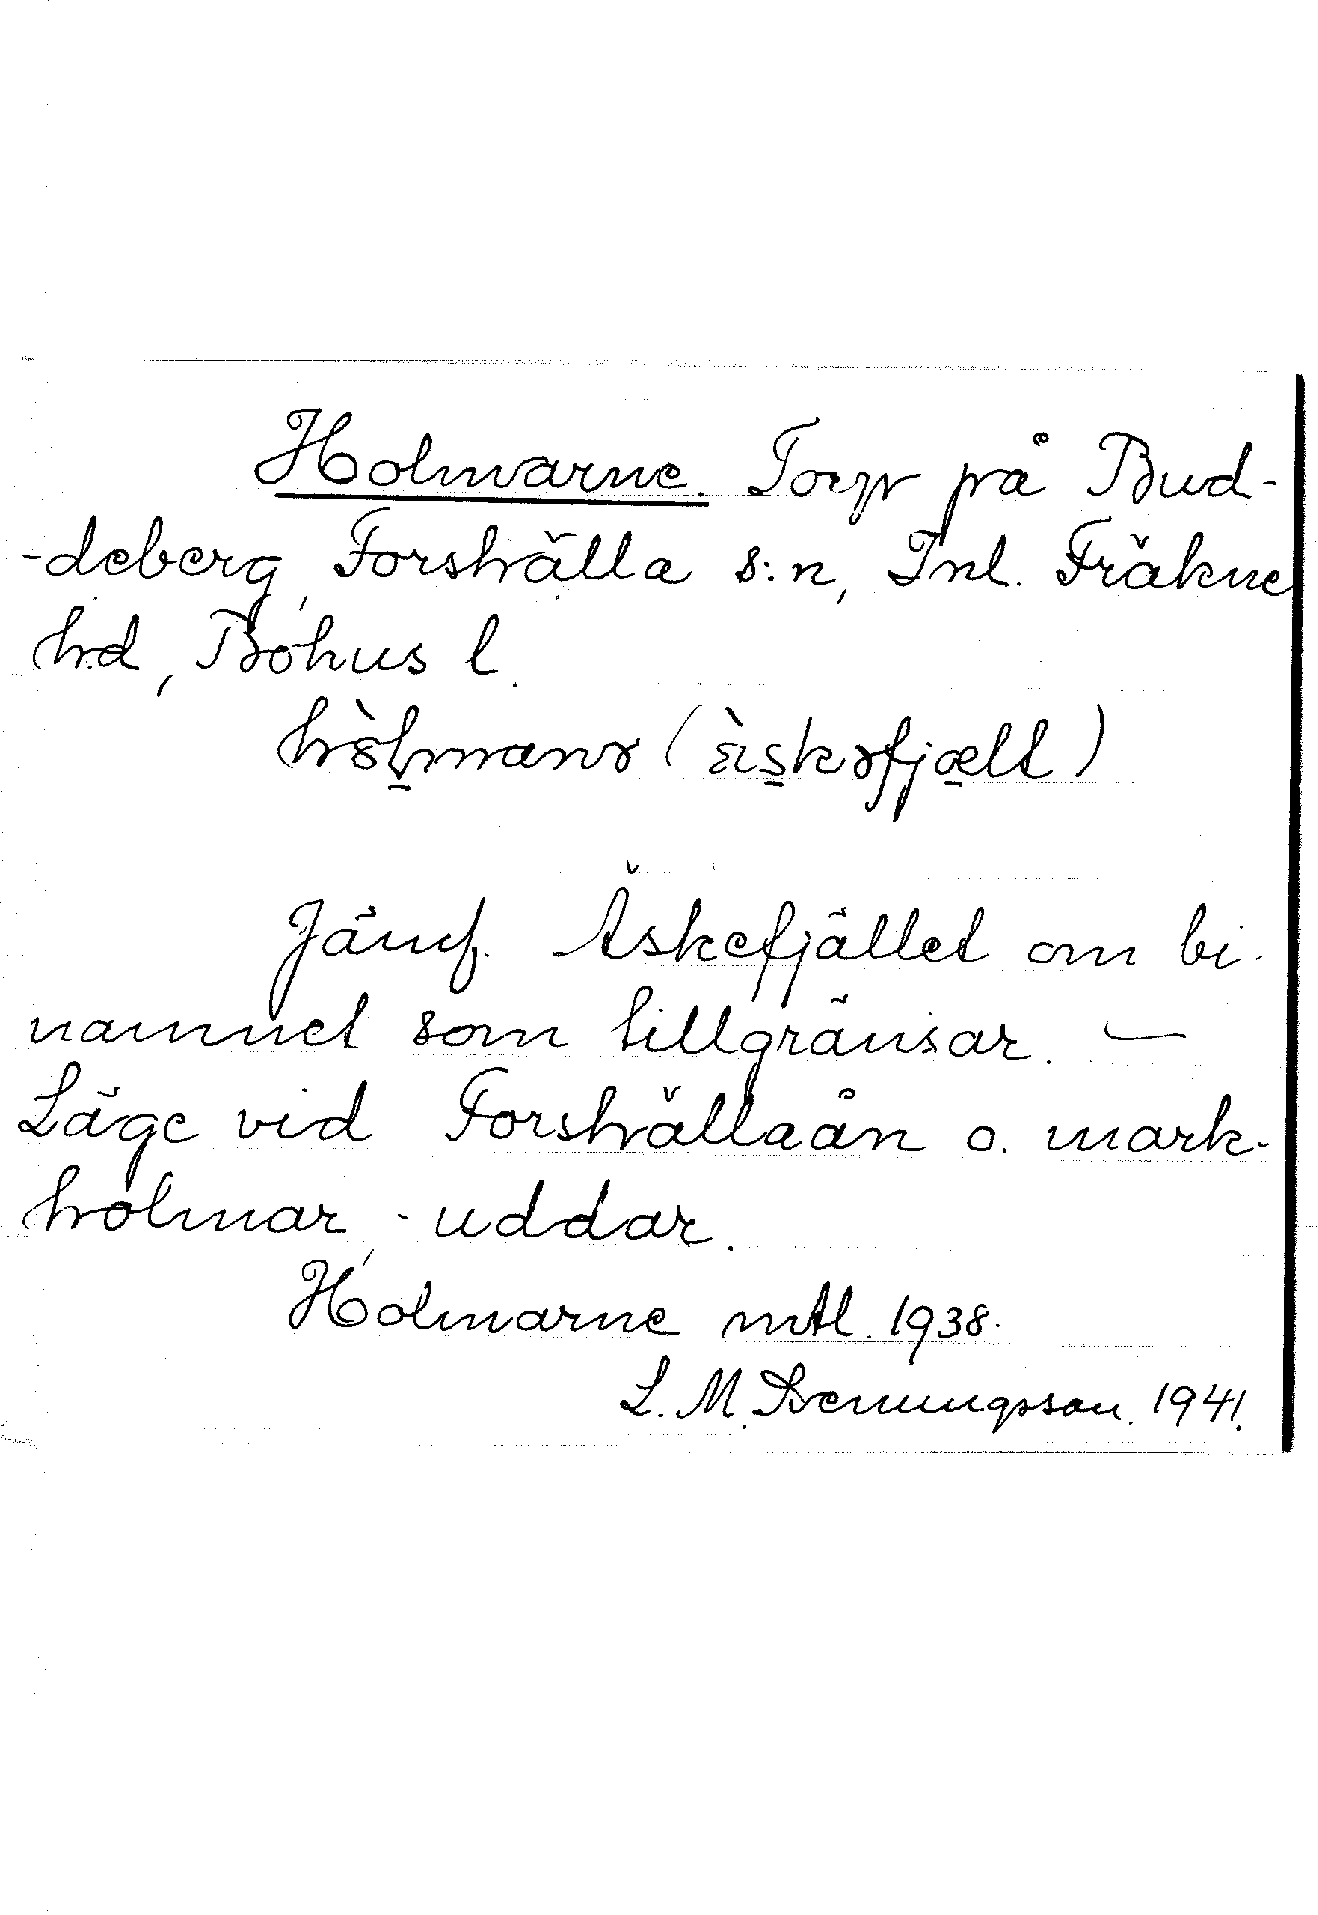 Holmarne. Torp på Bud-
-deberg, Forshälla s:n, Inl. Fräkne
hd, Bohus l.
Jämf. Äskefjället om bi-
namnet som tillgränsar. —
Läge vid Forshällaån o. mark-
holmar, -uddar.
Holmarne mtl. 1938.
L. M. Svenungsson. 1941.